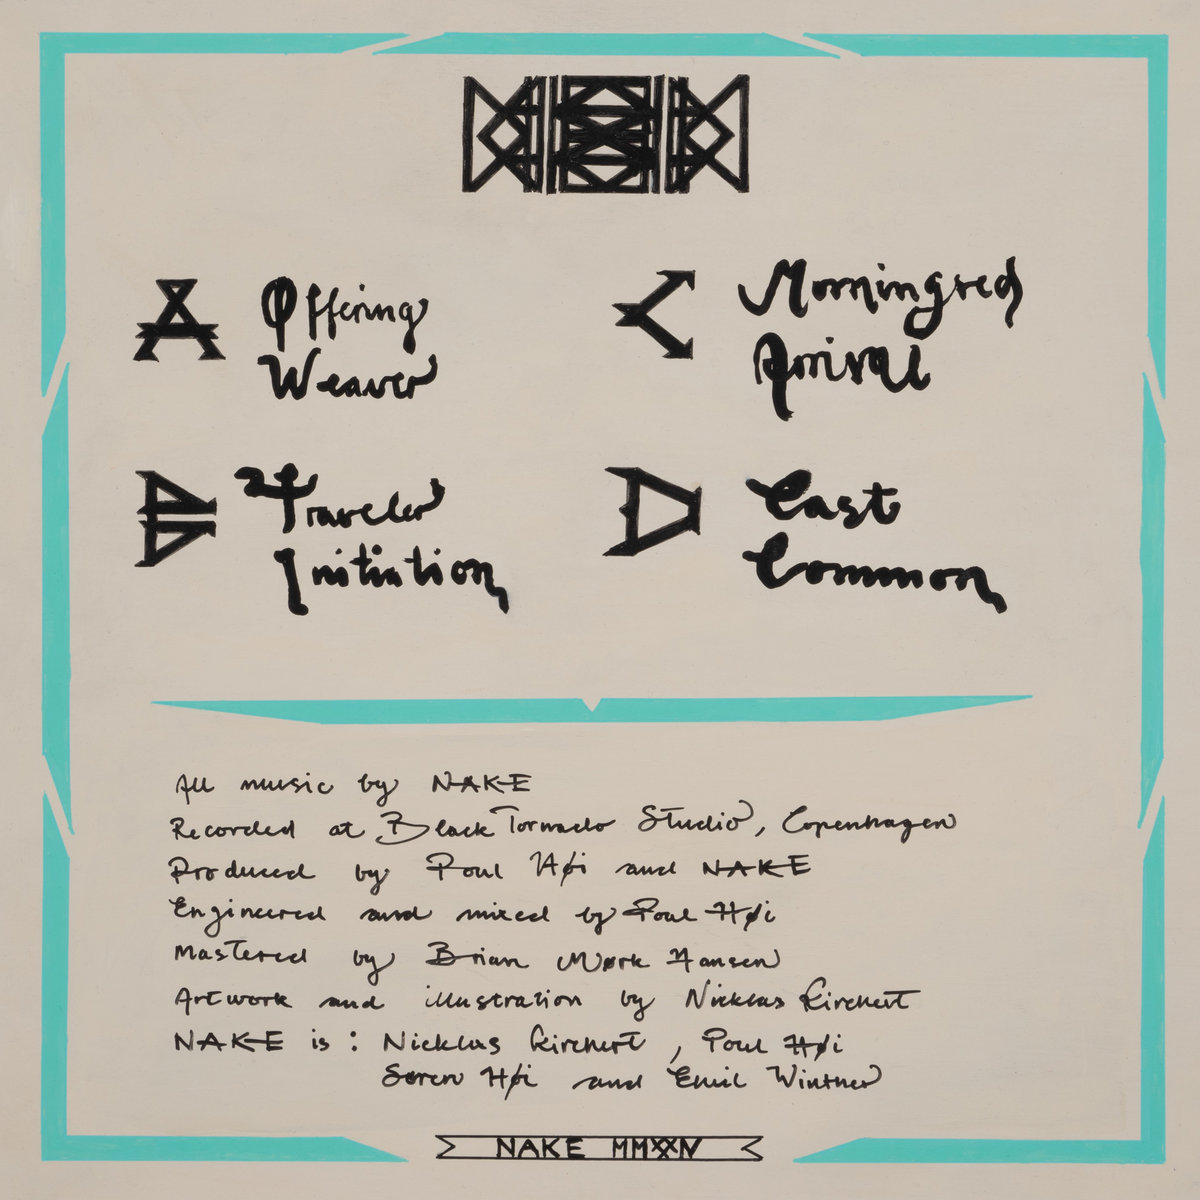 A
Offering
Weaver
B
Traveler
Initiation
C
Morningred
Arrival
D
Cast
Common
All music by NAKE
Recorded at Black Tornado Studio, Copenhagen
Produced by Poul Høi and NAKE
Engineered and mixed by Poul Høi
Mastered by Brian Mørk Hansen
Artwork and illustration by Nicklas Kirchert
NAKE is: Nicklas Kirchert, Poul Høi
Søren Høi and Emil Winther
NAKE MMXXIV